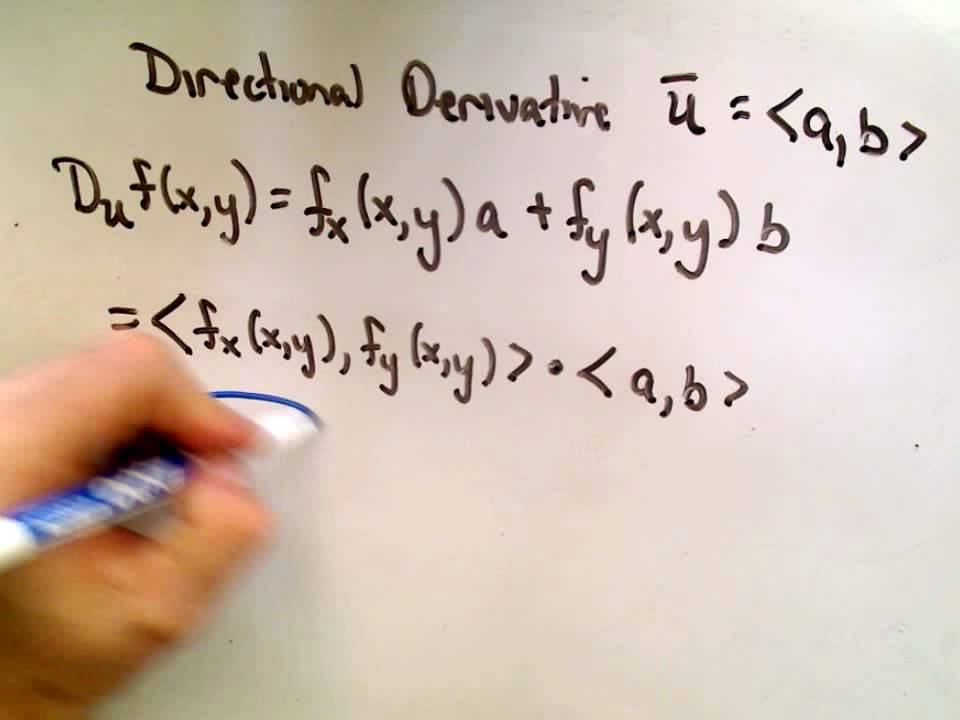 Directional Derivative ū = <a, b>
Dᵤf(x,y) = fₓ(x,y)a + f_y(x,y)b
= <fₓ(x,y), f_y(x,y)> · <a, b>